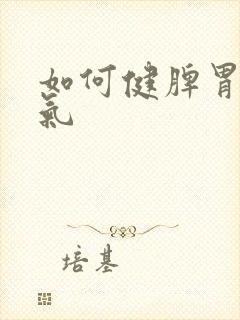 如何健脾胃
氣
培基